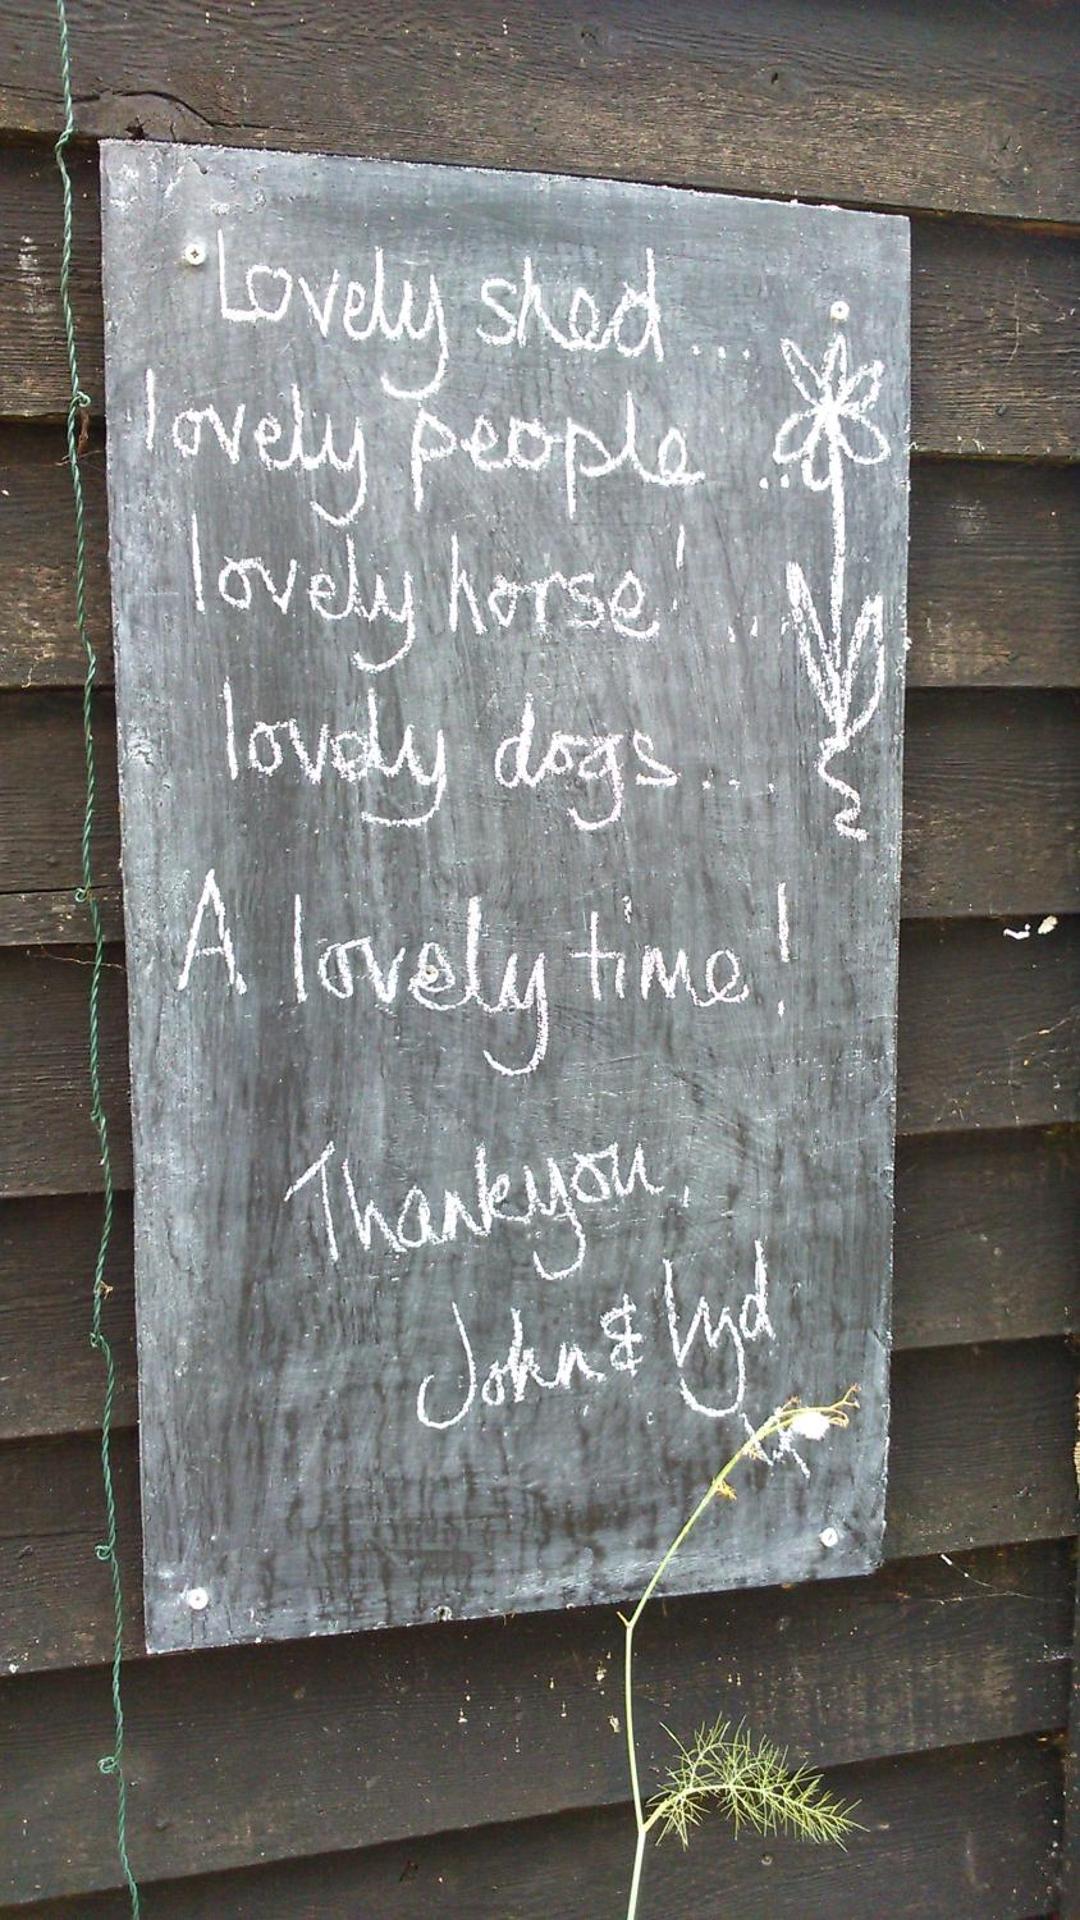 Lovely shed...
lovely people...
lovely horse! ...
lovely dogs...
A lovely time!
Thankyou,
John & Lyd
xx